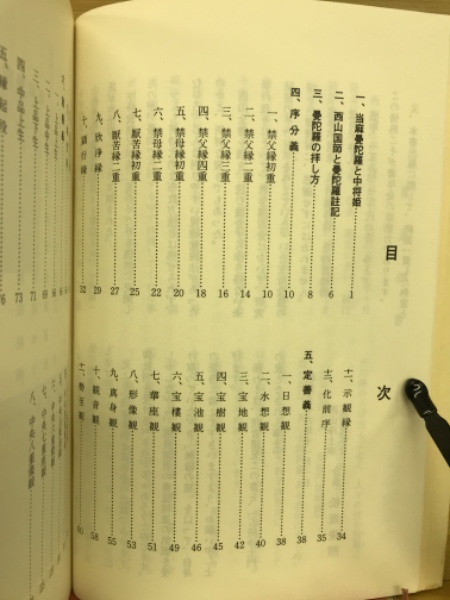 目次
一、当麻曼陀羅と中将姫 1
二、西山国師と曼陀羅註記 6
三、曼陀羅の拝し方 8
四、序分義 10
一、禁父縁初重 10
二、禁父縁二重 14
三、禁父縁三重 16
四、禁父縁四重 18
五、禁母縁初重 20
六、禁母縁二重 22
七、厭苦縁初重 25
八、厭苦縁二重 27
九、欣浄縁 29
十、顕行縁 32
十一、示観縁 34
十二、化前序 35
五、定善義 38
一、日想観 38
二、水想観 40
三、宝地観 42
四、宝樹観 45
五、宝池観 46
六、宝楼観 49
七、華座観 51
八、形像観 53
九、真身観 55
十、観音観 58
十一、勢至観 60
二、上品中生
三、上品下生 71
四、中品上生 73
五、縁起段 76